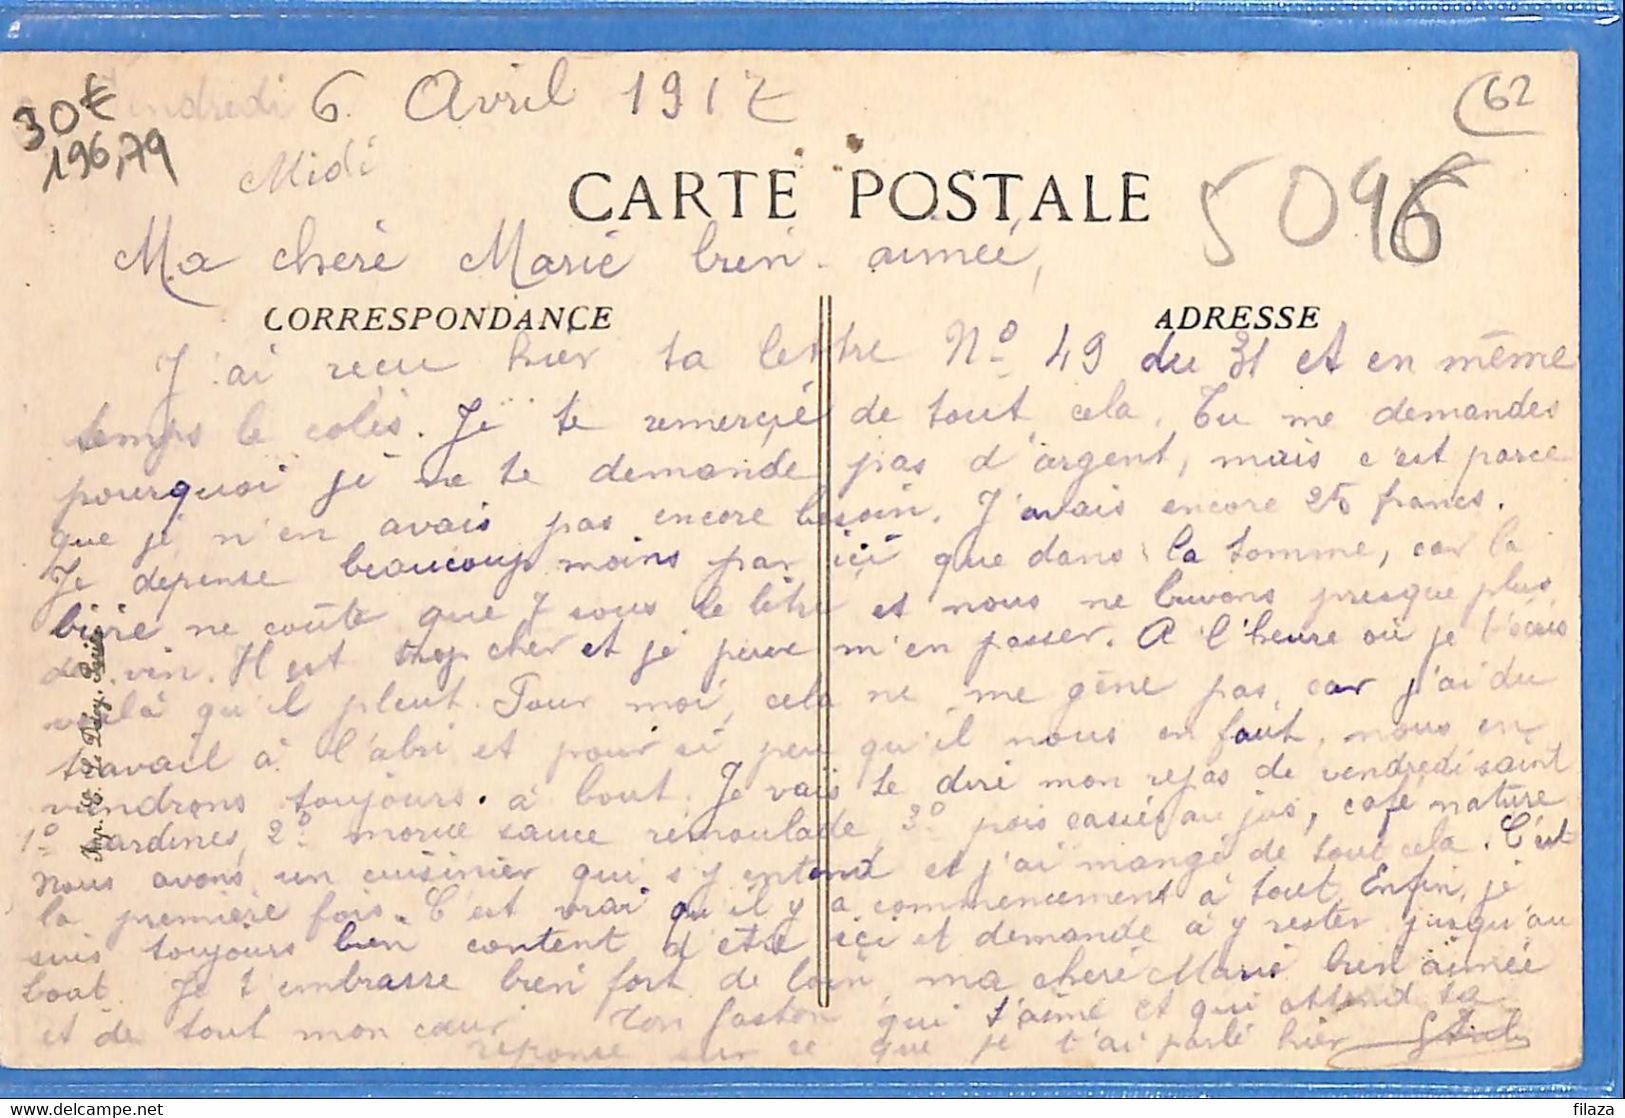 Vendredi 6 Avril 1917
62
30€
196,79
Midi
CARTE POSTALE
5096
Ma chère Marie bien-aimée,
CORRESPONDANCE
ADRESSE
J'ai reçu hier ta lettre Nº 49 du 31 et en même
temps le colis. Je te remercie de tout cela. Tu me demandes
pourquoi je ne te demande pas d'argent, mais c'est parce
que je n'en avais pas encore besoin. J'avais encore 25 francs.
Je dépense beaucoup moins par ici que dans la Somme, car la
bière ne coûte que 7 sous le litre et nous ne buvons presque plus
de vin. Il est trop cher et je peux m'en passer. A l'heure où je t'écris
voilà qu'il pleut. Pour moi, cela ne me gêne pas car j'ai du
travail à l'abri et pour si peu qu'il nous en faut, nous en
viendrons toujours à bout. Je vais te dire mon repas de vendredi saint
1º Sardines, 2º morue sauce rémoulade, 3º pois cassés au jus, café nature
Nous avons un cuisinier qui s'y entend et j'ai mangé de tout cela. C'est
la première fois. C'est vrai qu'il y a commencement à tout. Enfin, je
suis toujours bien content d'être ici et demande à y rester jusqu'au
bout. Je t'embrasse bien fort de loin, ma chère Marie bien aimée
et de tout mon cœur. Ton Gaston qui t'aime et qui attend ta
réponse sur ce que je t'ai parlé hier
delcampe.com
filaza